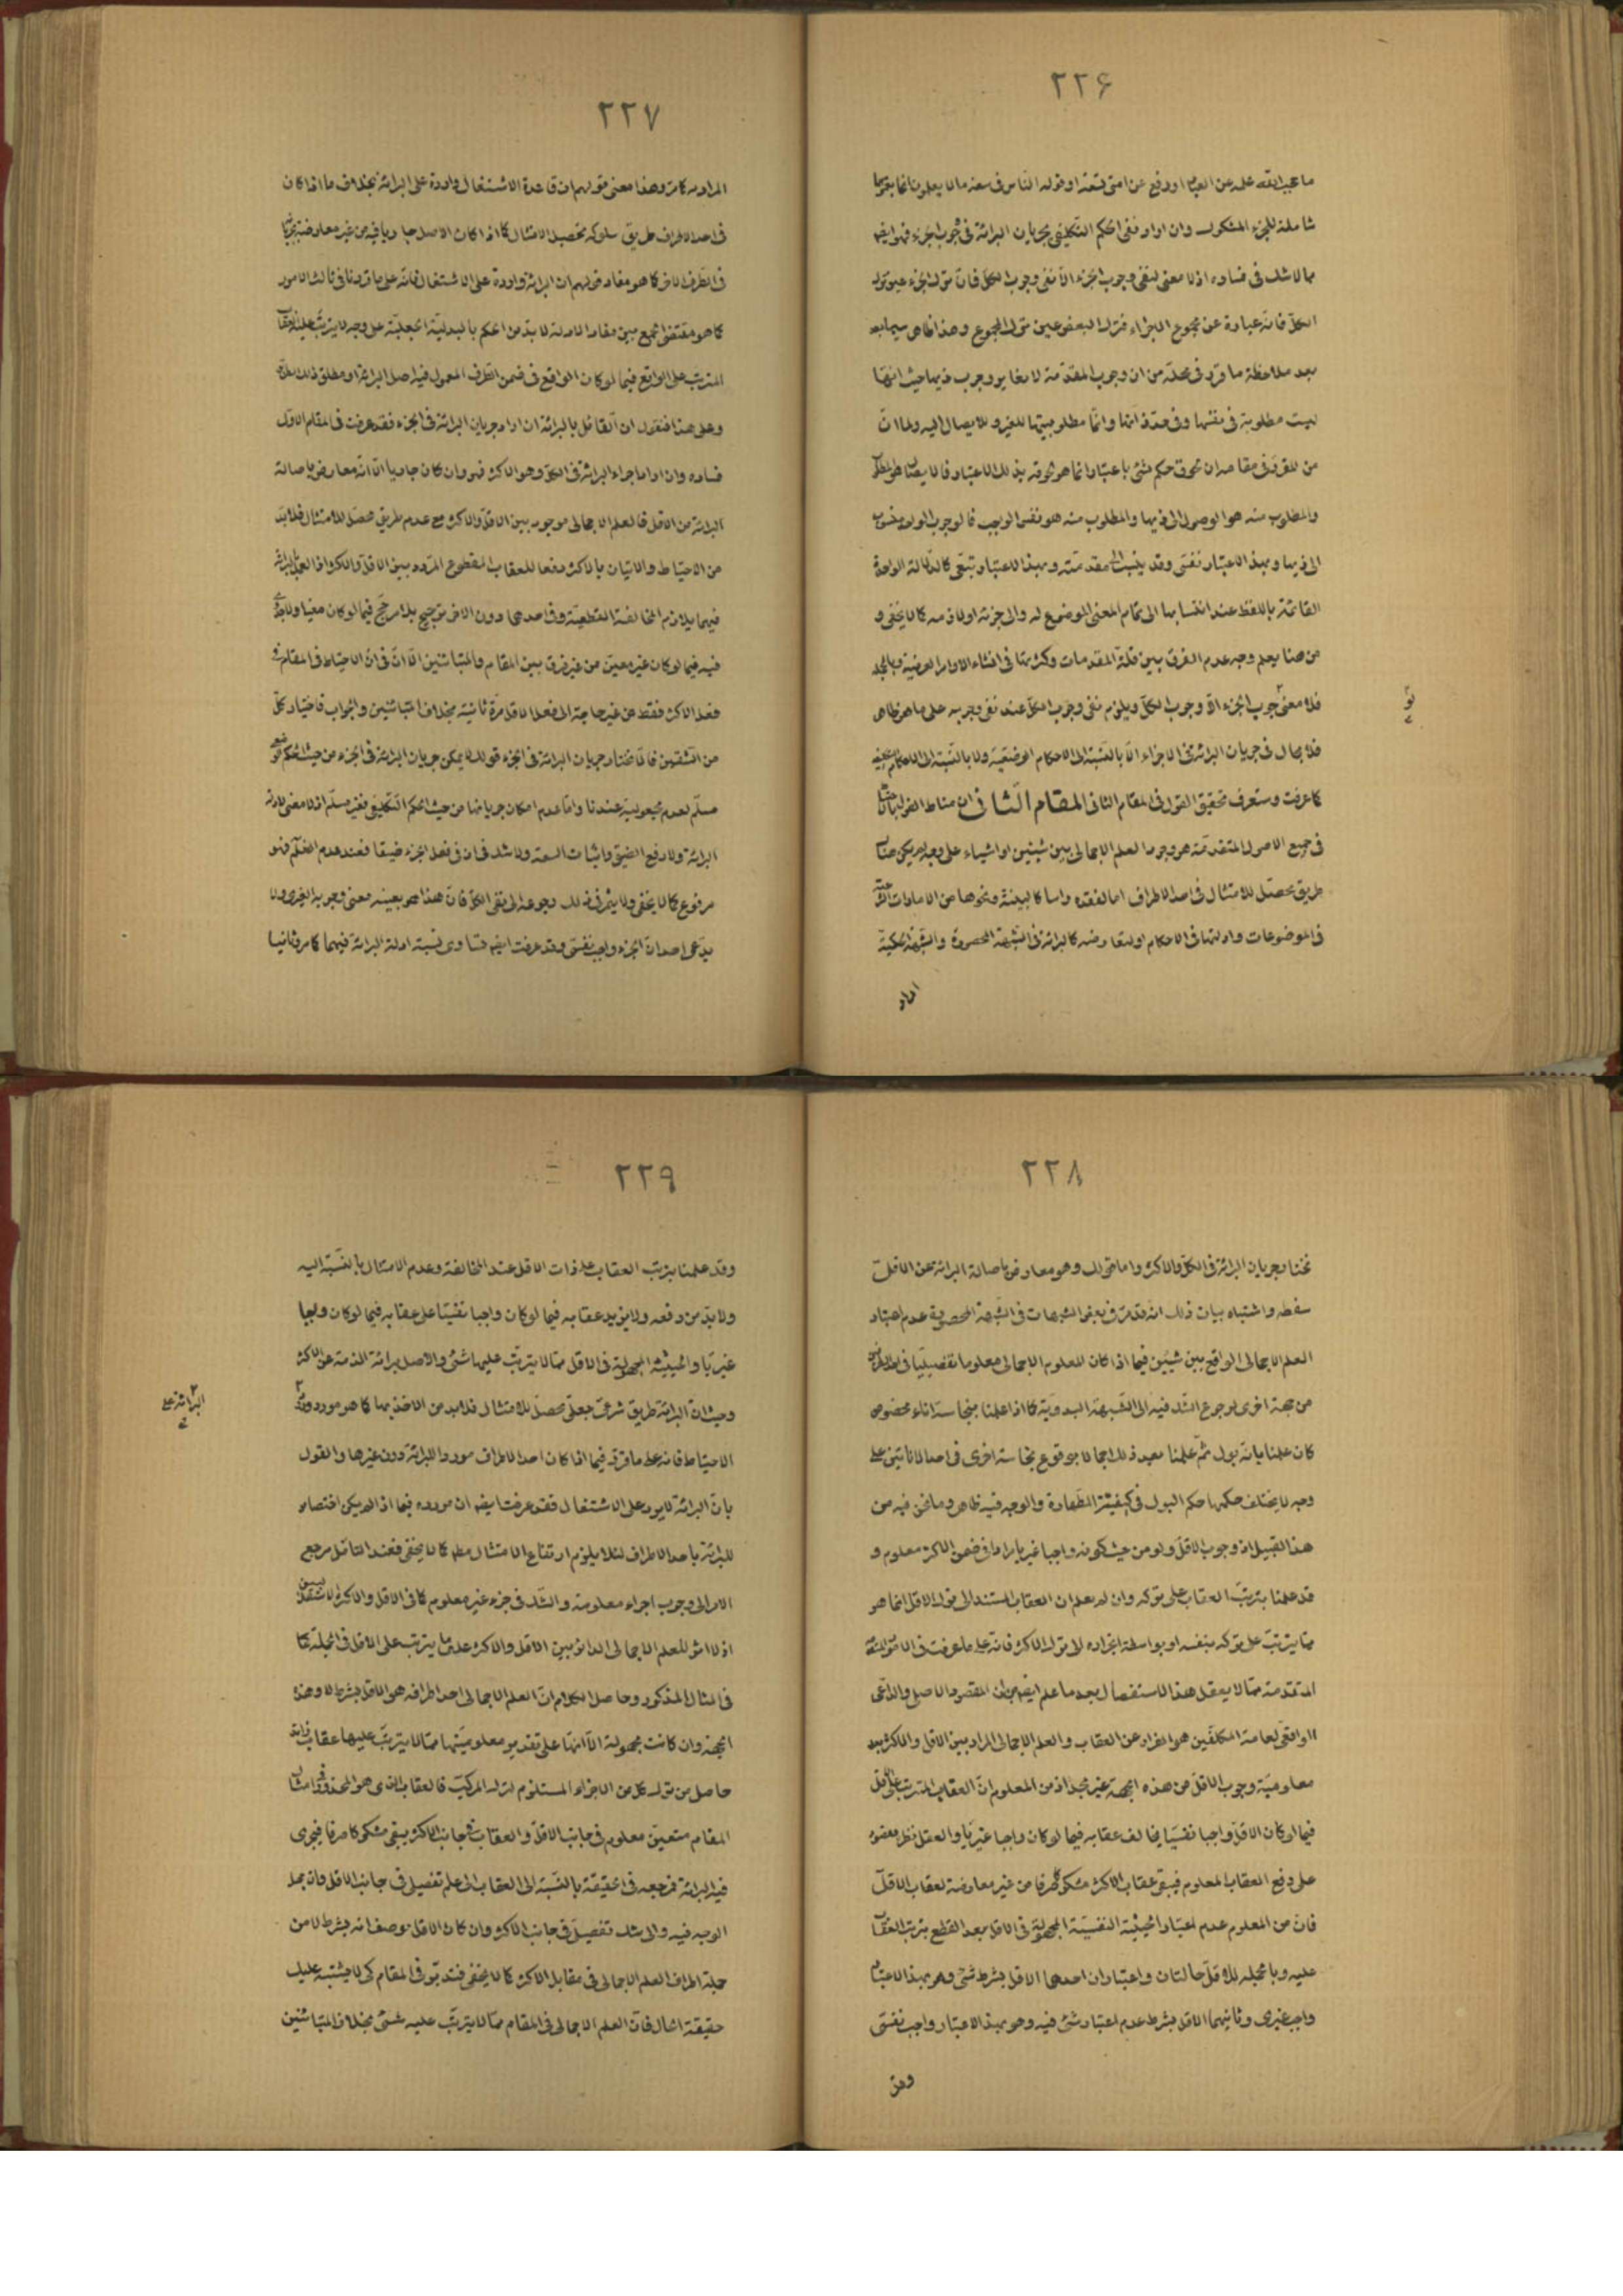 ٢٢۶
ما حجب الله علمه عن العباد او رفع عن امتى تسعة او قوله الناس فى سعة ما لا يعلمون انما يعمها
شاملة للجزء المشكوك وان اراد نفى الحكم التكليفى بجريان البرائة فى وجوب الجزء فهو ايضا
مما لا شك فى فساده اذ لا معنى لنفى وجوب الجزء الا نفى وجوب الكل فان ترك الجزء عين ترك
الكل فانه عبارة عن مجموع الاجزاء فترك البعض عين ترك المجموع وهذا ظاهر سيما بعد
بعد ملاحظة ما قرر فى محله من ان وجوب المقدمة لا يغاير وجوب ذيها حيث انها
ليست مطلوبة فى نفسها وفى حد ذاتها وانما مطلوبيتها للغير وللايصال اليه ولما ان
من المقرر فى مقامه ان لحوق حكم لشىء باعتبار انما هو لحوقه بذلك الاعتبار
والمطلوب منه هو الوصول الى ذيها والمطلوب منه هو نفس الواجب فالوجوب الواحد منسوب
الى ذيها وبهذا الاعتبار نفسى وقد ينسب الى مقدمته وبهذا الاعتبار تبعى كالدلالة الواحدة
القائمة باللفظ عند انتسابها الى تمام المعنى الموضوع له والى جزئه او لازمه كما لا يخفى و
من هنا يعلم وجه عدم الفرق بين قلة المقدمات وكثرتها فى انشاء الاوامر العرضية وبالجملة
فلا معنى لوجوب الجزء الا وجوب الكل ويلزم نفى وجوب الكل عند نفى وجوبه على ما هو ظاهر
فلا مجال فى جريان البرائة فى الاجزاء الا بالنسبة الى الاحكام الوضعية ولا بالنسبة الى الاحكام التكليفية
كما عرفت وستعرف تحقيق القول فى المقام الثانى المقام الثانى ان مناط القول بالاحتياط
فى جميع الاصول المتقدمة هو وجود العلم الاجمالى بين شيئين او اشياء على وجه لم يكن هناك
طريق محصل للامتثال فى احد الاطراف اما لفقده راسا كالبينة ونحوها من الامارات
فى الموضوعات وادلتها فى الاحكام او لتعارضه كالبرائة فى الشبهة المحصورة والشبهة الحكمية
المراد
٢٢٧
المراد به كما مر وهذا معنى قولهم ان قاعدة الاشتغال واردة على البرائة بخلاف ما اذا كان
فى احد الاطراف طريق سلوكه محصل الامتثال كما اذا كان الاصل جاريا فيه من غير معارضة بجريانها
فى الطرف الاخر كما هو مفاد قولهم ان البرائة واردة على الاشتغال فانه على ما قررنا فى ثالث الامور
كما هو مقتضى الجمع بين مفاد الادلة لا بد من الحكم بالبدلية الجعلية على وجه لا يترتب عليه العقاب
المترتب على الواقع فيما لو كان الواقع فى ضمن الطرف المعمول فيه اصل البرائة او مطلق ذلك
وعلى هذا فنقول ان القائل بالبرائة ان اراد جريان البرائة فى الجزء فقد عرفت فى المقام الاول
فساده وان اراد اجراء البرائة فى الكل وهو الاكثر فهو وان كان جاريا الا انه معارض باصالة
البرائة من الاقل فالعلم الاجمالى موجود بين الاقل والاكثر مع عدم طريق محصل للامتثال فلا بد
من الاحتياط والاتيان بالاكثر دفعا للعقاب المقطوع المردد بين الاقل والاكثر اذا العمل بالبرائة
فيهما يلازم المخالفة القطعية وفى احدهما دون الاخر ترجيح بلا مرجح فيما لو كان معينا
فيه فيما لو كان غير معين من غير فرق بين المقام والمتباينين الا ان فى ان الاحتياط فى المقام
فعل الاكثر فقط من غير حاجة الى فعل الاقل مرة ثانية بخلاف المتباينين والجواب فاختيار كل
من الشقين فانا نختار جريان البرائة فى الجزء قولك لا يمكن جريان البرائة فى الجزء من حيث الحكم الوضعى
مسلم لعدم مجعوليته عندنا واما عدم امكان جريانها من حيث الحكم التكليفى فغير مسلم اذ لا معنى لادلة
البرائة ولا رفع الضيق واثبات السعة ولا شك فى ان فى فعل الجزء ضيقا فعند عدم العلم فهو
مرفوع كما لا يخفى ولا يثمر فى ذلك رجوعه الى نفى الكل فان هذا هو بعينه معنى وجوبه الغيرى ولا
يدعى احد ان الجزء واجب نفسى وقد عرفت ايضا تساوى نسبة ادلة البرائة فيهما كما مر وثانيا
٢٢٨
نختار جريان البرائة فى الكل والاكثر واما قولك وهو معارض باصالة البرائة عن الاقل
سفطه واشتباه بيان ذلك انه قد مر فى بعض الشبهات فى الشبهة المحصورة عدم اعتبار
العلم الاجمالى الواقع بين شيئين فيما اذا كان المعلوم الاجمالى معلوما تفصيليا فى احد الاطراف
من جهة اخرى لرجوع الشك فيه الى الشبهة البدوية كما اذا علمنا بنجاسة اناء مخصوص
كان علمنا بانه بول ثم علمنا بعد ذلك اجمالا بوقوع نجاسة اخرى فى احد الانائين على
وجه لا يختلف حكمها حكم البول فى كيفية الطهارة والوجه فيه ظاهر وما نحن فيه من
هذا القبيل اذ وجوب الاقل ولو من حيث كونه واجبا غيريا مرادا فى ضمن الاكثر معلوم و
قد علمنا بترتب العقاب على تركه وان لم يعلم ان العقاب المستند الى ترك الاقل انما هو
مما يترتب على تركه بنفسه او بواسطة انجراره الى ترك الاكثر فانه على ما عرفت فى
المتقدمة مما لا يعقل هذا الاستفصال بعد ما علم ايضا من ان المقصود الاصلى والداعى
الواقعى لعامة المكلفين هو الفرار عن العقاب والعلم الاجمالى المراد بين الاقل والاكثر بعد
معلومية وجوب الاقل من هذه الجهة غير مجد اذ من المعلوم ان العقاب المترتب على الاقل
فيما لو كان الاقل واجبا نفسيا يخالف عقابه فيما لو كان واجبا غيريا والعقل نظره مقصور
على دفع العقاب المعلوم فيبقى عقاب الاكثر مشكوكا صرفا من غير معارضة لعقاب الاقل
فان من المعلوم عدم اعتبار الحيثية النفسية المجهولة فى الاقل بعد القطع بترتب العقاب
عليه وبالجملة للاقل حالتان واعتباران احدهما الاقل بشرط شىء وهو بهذا الاعتبار
واجب غيرى وثانيهما الاقل بشرط عدم اعتبار شىء فيه وهو بهذا الاعتبار واجب نفسى
وقد
٢٢٩
وقد علمنا بترتب العقاب على ذات الاقل عند المخالفة وعدم الامتثال بالنسبة اليه
ولا بد من دفعه ولا يزيد عقابه فيما لو كان واجبا نفسيا على عقابه فيما لو كان واجبا
غيريا والحيثية المجهولة فى الاقل مما لا يترتب عليها شىء والاصل برائة الذمة عن الاكثر
وحيث ان البرائة طريق شرعى جعلى محصل للامتثال فلا بد من الاخذ بها كما هو مورد ورود
البرائة على
الاحتياط فانه على ما قرر فيما اذا كان احد الاطراف موردا للبرائة دون غيرها والقول
بان البرائة لا يرد على الاشتغال فقد عرفت ايضا ان مورده فيما اذا لم يكن اختصاص
للبرائة باحد الاطراف لئلا يلزم ارتفاع الامتثال مطلقا كما لا يخفى فعند التامل مرجع
الامر الى وجوب اجزاء معلومة والشك فى جزء غير معلوم كما فى الاقل والاكثر الاستقلاليين
اذ لا اثر للعلم الاجمالى الدائر بين الاقل والاكثر على ما يترتب على الاقل فى الجملة كما
فى المثال المذكور وحاصل الكلام ان العلم الاجمالى احد اطرافه هو الاقل بشرط لا وهذه
الجهة وان كانت مجهولة الا انها على تقدير معلوميتها مما لا يترتب عليها عقاب زائد
حاصل من ترك كل من الاجزاء المستلزم لترك المركب فالعقاب الذى هو المحذور فى امثال
المقام متعين معلوم فى جانب الاقل والعقاب فى جانب الاكثر يبقى مشكوكا صرفا فيجرى
فيه البرائة فمرجعه فى الحقيقة بالنسبة الى العقاب الى علم تفصيلى فى جانب الاقل
الوجه فيه والى شك تفصيلى فى جانب الاكثر وان كان الاقل بوصف انه بشرط لا من
جملة اطراف العلم الاجمالى فى مقابل الاكثر كما لا يخفى فتدبر فى المقام كى لا يشتبه عليك
حقيقة الحال فان العلم الاجمالى فى المقام مما لا يترتب عليه شىء بخلاف المتباينين